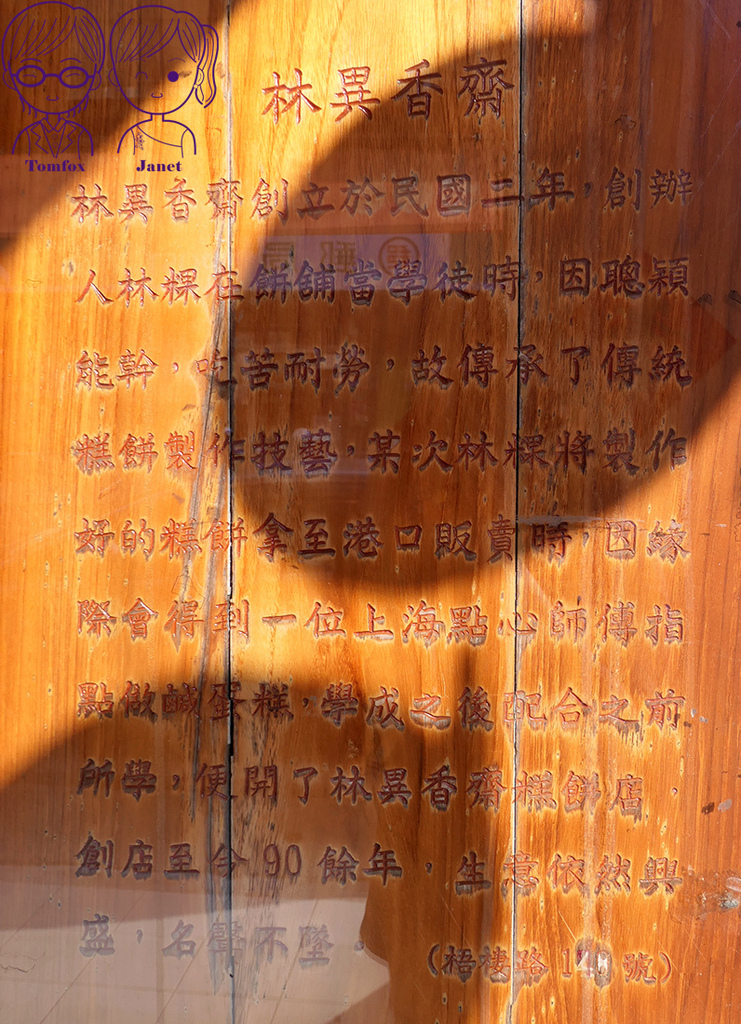 Tomfox Janet
林異香齋
林異香齋創立於民國二年，創辦
人林粿在餅舖當學徒時，因聰穎
能幹，吃苦耐勞，故傳承了傳統
糕餅製作技藝，某次林粿將製作
好的糕餅拿至港口販賣時，因緣
際會得到一位上海點心師傅指
點做鹹蛋糕，學成之後配合之前
所學，便開了林異香齋糕餅店
創店至今90餘年，生意依然興
盛，名聲不墜。
(梧棲路 號)